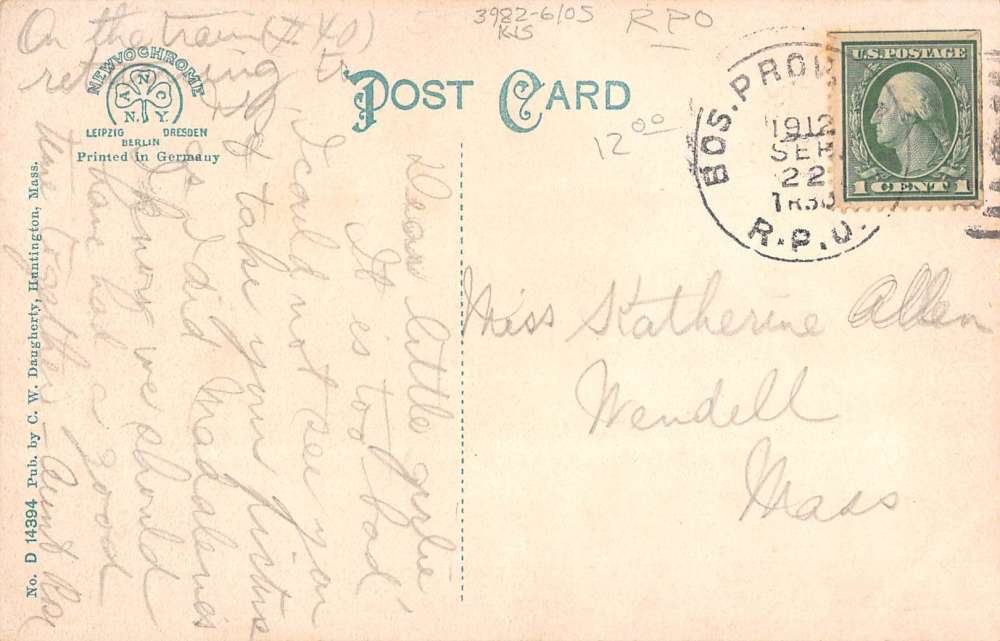 On the train (7 40)
returning to
3982-6/05
KIS
RPO
NEWVOCHROME
N
A C
N.Y.
LEIPZIG DRESDEN
BERLIN
Printed in Germany
POST CARD
12 00
BOS. PROV
1912
SEP
22
R.P.O.
U.S. POSTAGE
1 CENT 1
Dear little girlie'
It is too bad
I could not see you
& take your picture
as I did Madalene's
I know we should
have had a good
time together - Aunt
Miss Katherine Allen
Wendell
Mass
No. D 14394 Pub. by C. W. Daugherty, Huntington, Mass.